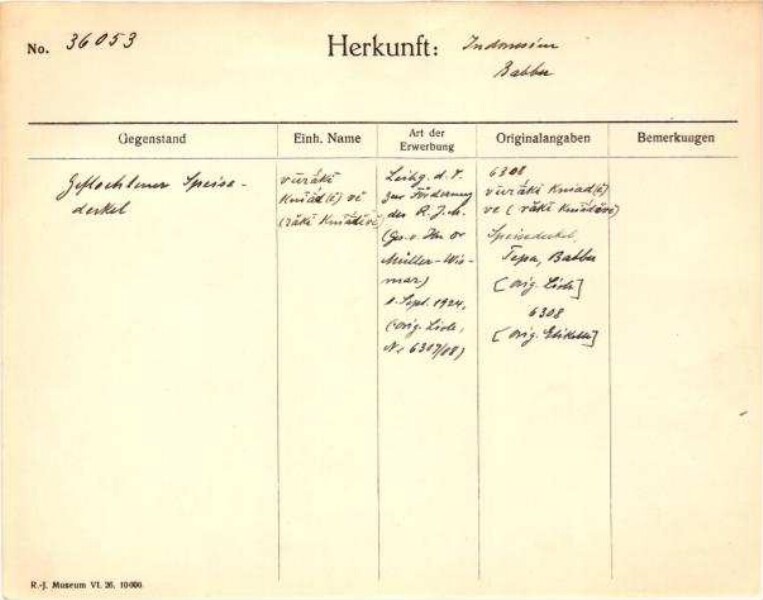 No. 36053
Herkunft: Indonesien
Babber
Gegenstand
Einh. Name
Art der
Erwerbung
Originalangaben
Bemerkungen
Geflochtener Speise-
deckel
vūráki
Kniád(ĕ) vĕ
(răki Kniădĕvĕ)
Leihg. d. V.
zur Förderung
des R. J. M.
(Ges. v. Hn Dr
Müller-Wis-
mar)
Sept. 1924.
(orig. Liste,
Nr 6307/08)
6308
vūráki Kniad(ĕ)
ve (răki Kniădĕvĕ)
Speisedeckel,
Tepa, Babber
[orig. Liste]
6308
[orig. Etikette]
R.-J. Museum VI. 26. 10000.